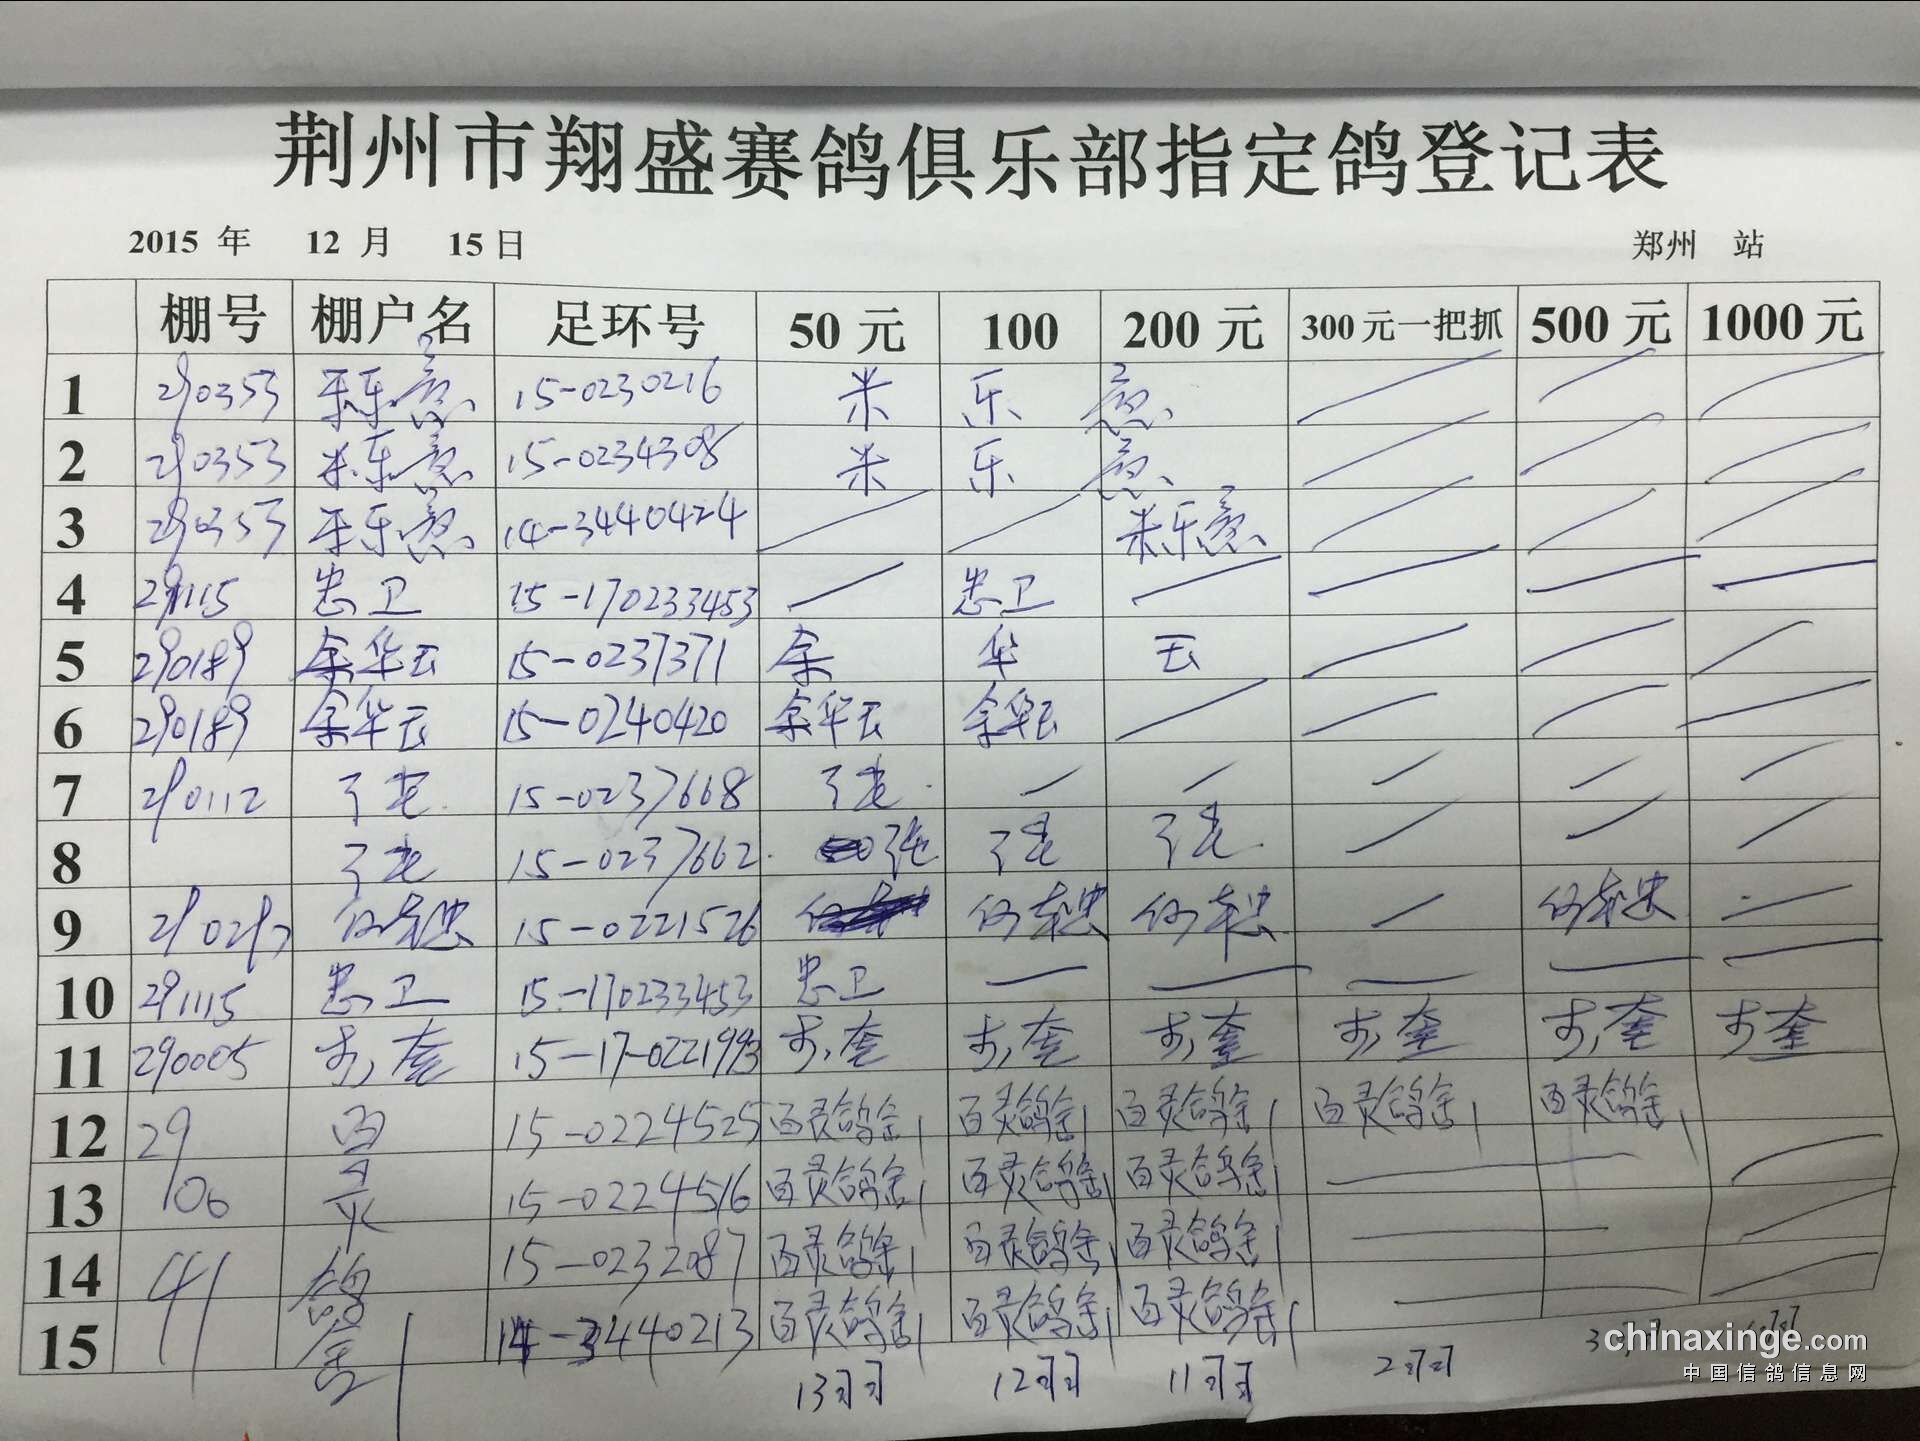 荆州市翔盛赛鸽俱乐部指定鸽登记表
2015 年 12 月 15日 郑州 站
棚号 棚户名 足环号 50 元 100 200 元 300元一把抓 500 元 1000 元
1 290353 米乐意 15-0230216 米 乐 意
2 290353 米乐意 15-0234308 米 乐 意
3 290353 米乐意 14-3440424 米乐意
4 291115 忠卫 15-170233453 忠卫
5 290189 余华云 15-0237371 余 华 云
6 290189 余华云 15-0240420 余华云 余华云
7 290112 15-0237668
8 15-0237662
9 15-0221526
10 291115 忠卫 15-170233453 忠卫
11 290005 奎 15-17-0221993 奎 奎 奎 奎 奎 奎
12 29 百 15-0224525 百灵鸽舍 百灵鸽舍 百灵鸽舍 百灵鸽舍 百灵鸽舍
13 106 灵 15-0224516 百灵鸽舍 百灵鸽舍 百灵鸽舍
14 41 鸽 15-0232087 百灵鸽舍 百灵鸽舍 百灵鸽舍
15 舍 14-3440213 百灵鸽舍 百灵鸽舍 百灵鸽舍
13羽 12羽 11羽 2羽
chinaxinge.com
中国信鸽信息网